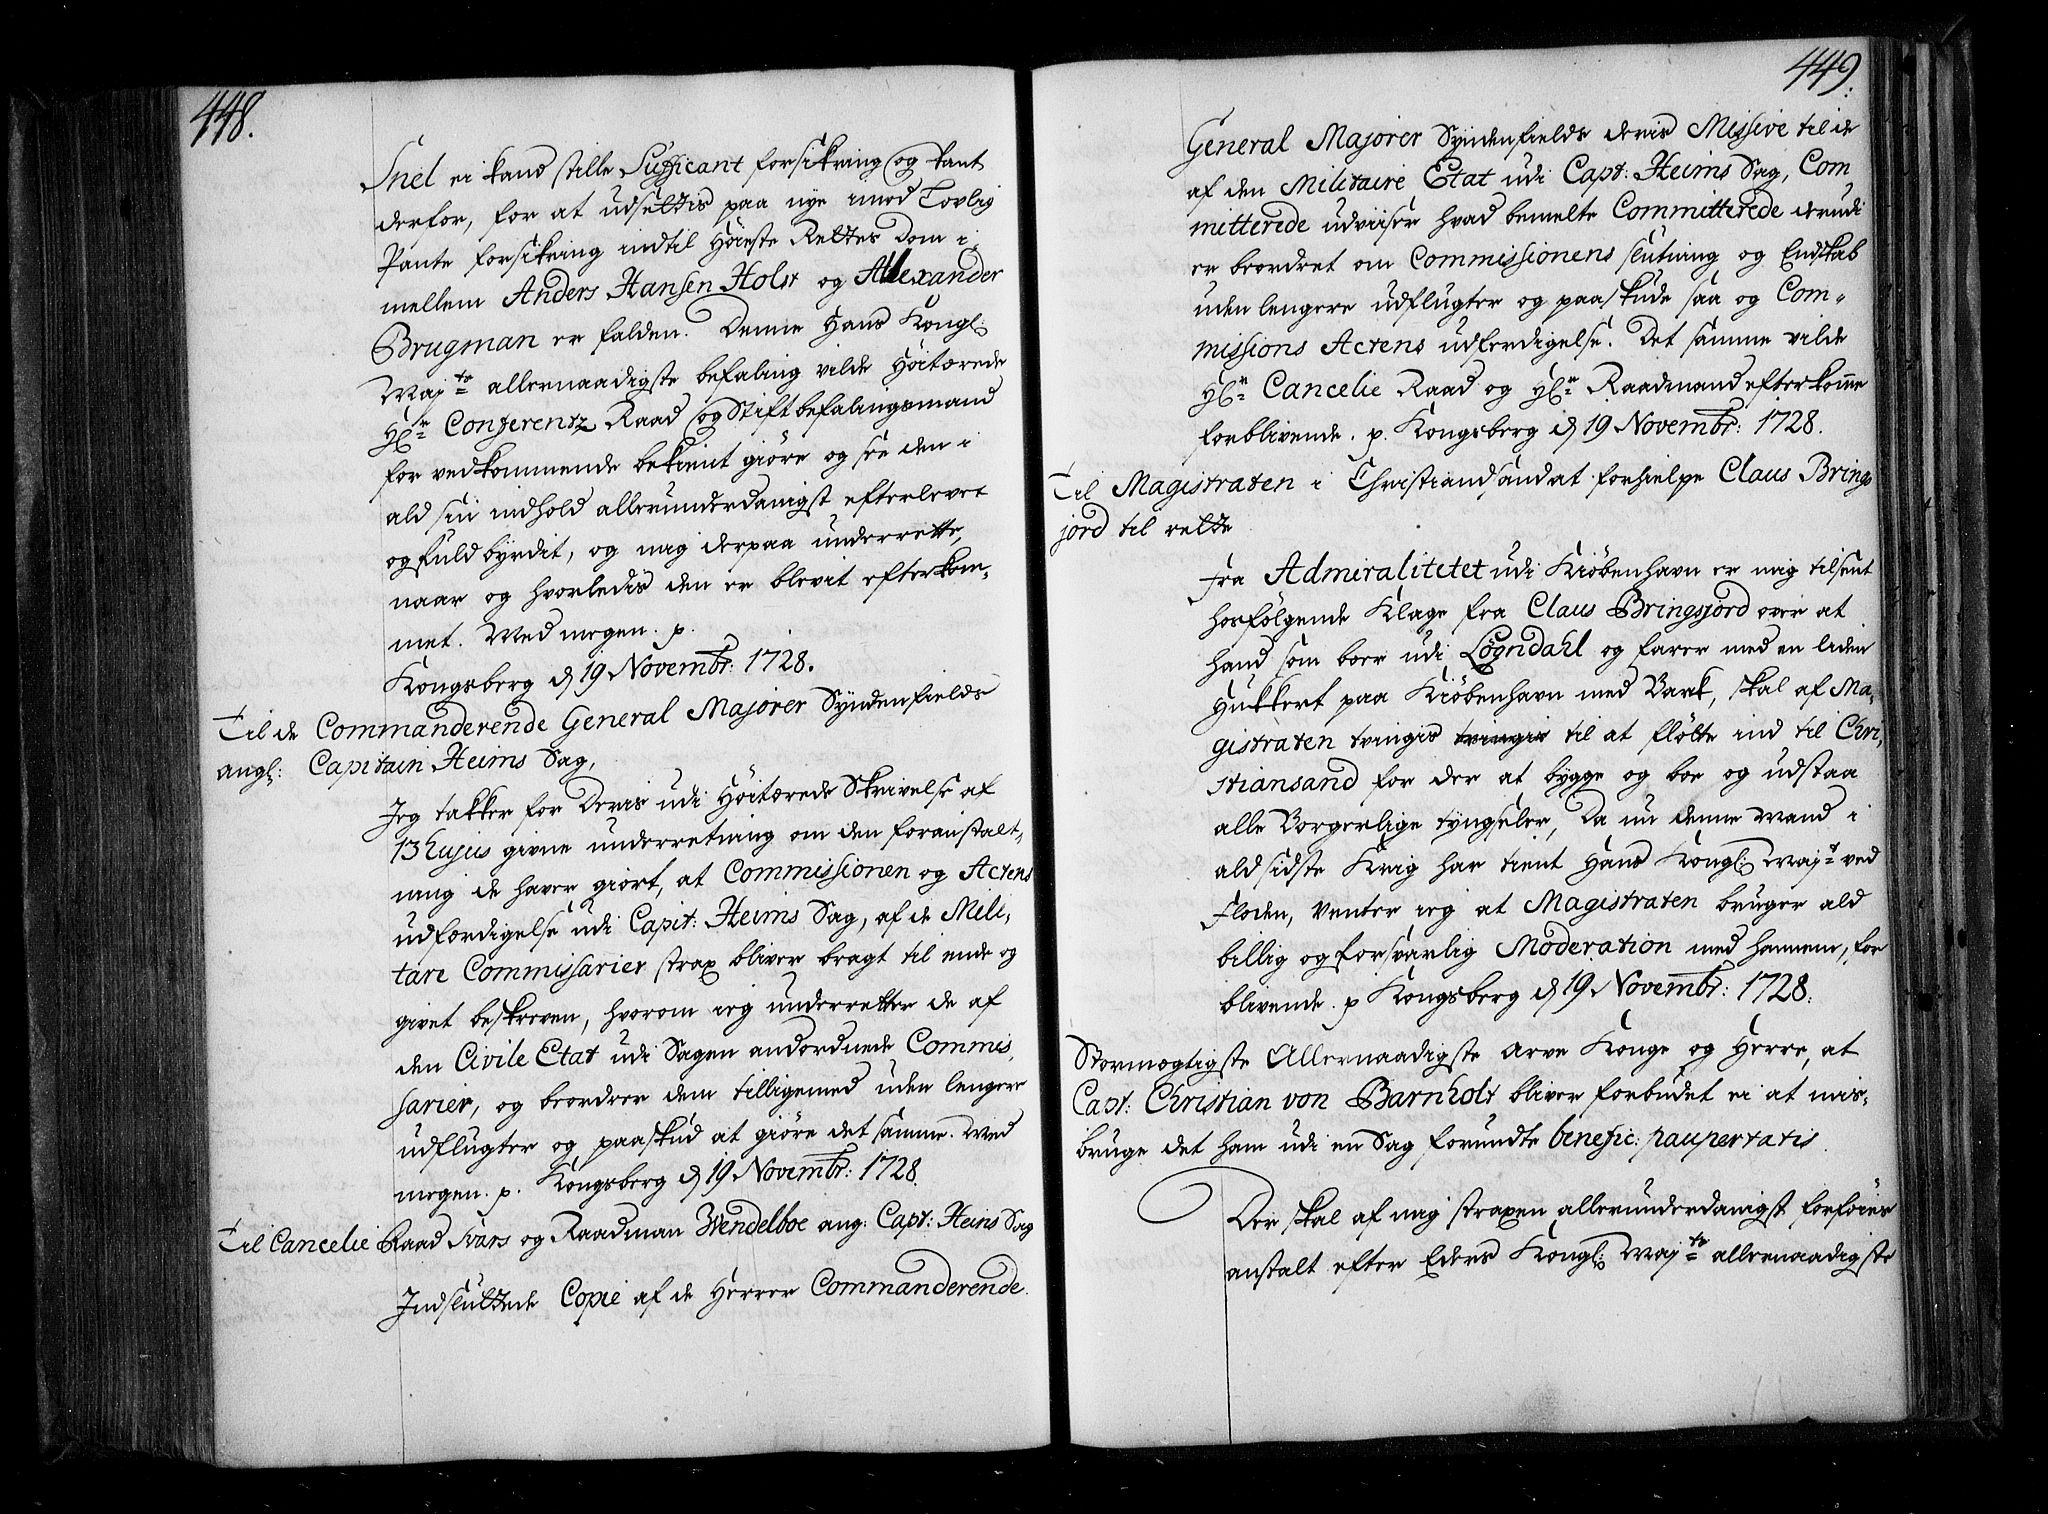 448.
Snel ei kand stille Sufficant forsikring og kant
derfor, for at udsettis paa nye imod Lovlig
Pante forsikring indtil Høieste Rettes Dom i
mellem Anders Hansen Holst og Alexander
Brugman er falden. Denne Hans Kongl:
Mayts allernaadigste befaling vilde Høitærede
Hr Conferentz Raad og Stiftbefalingsmand
for vedkommende bekient giøre og see den i
ald sin indhold allerunderdanigst efterlevet
og fuldbyrdit, og mig derpaa underrette,
naar og hvorledis den er blevit efterkom-
met. Med megen. p.
Kongsberg d 19 Novembr: 1728.
Til de Commanderende General Majorer Syndenfields
angl: Capitain Heims Sag,
Jeg takker for Deris udi Høitærede Skrivelse af
13 hujus givne underretning om den foranstalt-
ning de haver giort, at Commissionen og Actens
udfærdigelse udi Capit: Heims Sag, af de Mili-
tare Commissarier strax bliver bragt til ende og
givet beskreven, hvorom ieg underretter de af
den Civile Etat udi Sagen andordnede Commis-
sarier, og beordrer dem tilligemed uden lengere
udflugter og paaskud at giøre det samme. Med
megen. p. Kongsberg d 19 Novembr: 1728.
Til Cancelie Raad Ivars og Raadman Wendelboe ang: Capt: Heins Sag
Indsluttede Copie af de Herrer Commanderende
449.
General Majorer Syndenfields deris Missive til de
af den Militaire Etat udi Capt: Heims Sag, Com
mitterede udviiser hvad bemelte Committerede derudi
er beordret om Commissionens slutning og Endskab
uden lengere udflugter og paaskude saa og Com-
missions Actens udferdigelse. Det samme vilde
Hr Cancelie Raad og Hr Raadmand efterkomme
forblivende. p. Kongsberg d 19 Novembr: 1728.
Til Magistraten i Christiandsand at forhielpe Claus Brings
jord til rette
Fra Admiralitetet udi Kiøbenhavn er mig tilsent
hosfølgende Klage fra Claus Bringsjord over at
hand som boer udi Løgndahl og farer med en liden
Hukkert paa Kiøbenhavn med Vark, skal af Ma-
gistraten tvingis tvingis til at fløtte ind til Chri-
stiansand for der at bygge og boe og udstaa
alle Borgerlige tyngseler, Da nu denne Mand i
ald sidste Krig har tient Hans Kongl: Mayt ved
Floden, Venter ieg at Magistraten bruger ald
billig og forsvarlig Moderation med hannem, for
blivende. p Kongsberg d 19 Novembr: 1728.
Stormægtigste Allernaadigste Arve Konge og Herre, at
Capt: Christian von Barnholt bliver forbudet ei at mis-
bruge det ham udi en Sag forundte benefic: paupertatis.
Der skal af mig straxen allerunderdanigst forføies
anstalt efter Eders Kongl: Mayts allernaadigste